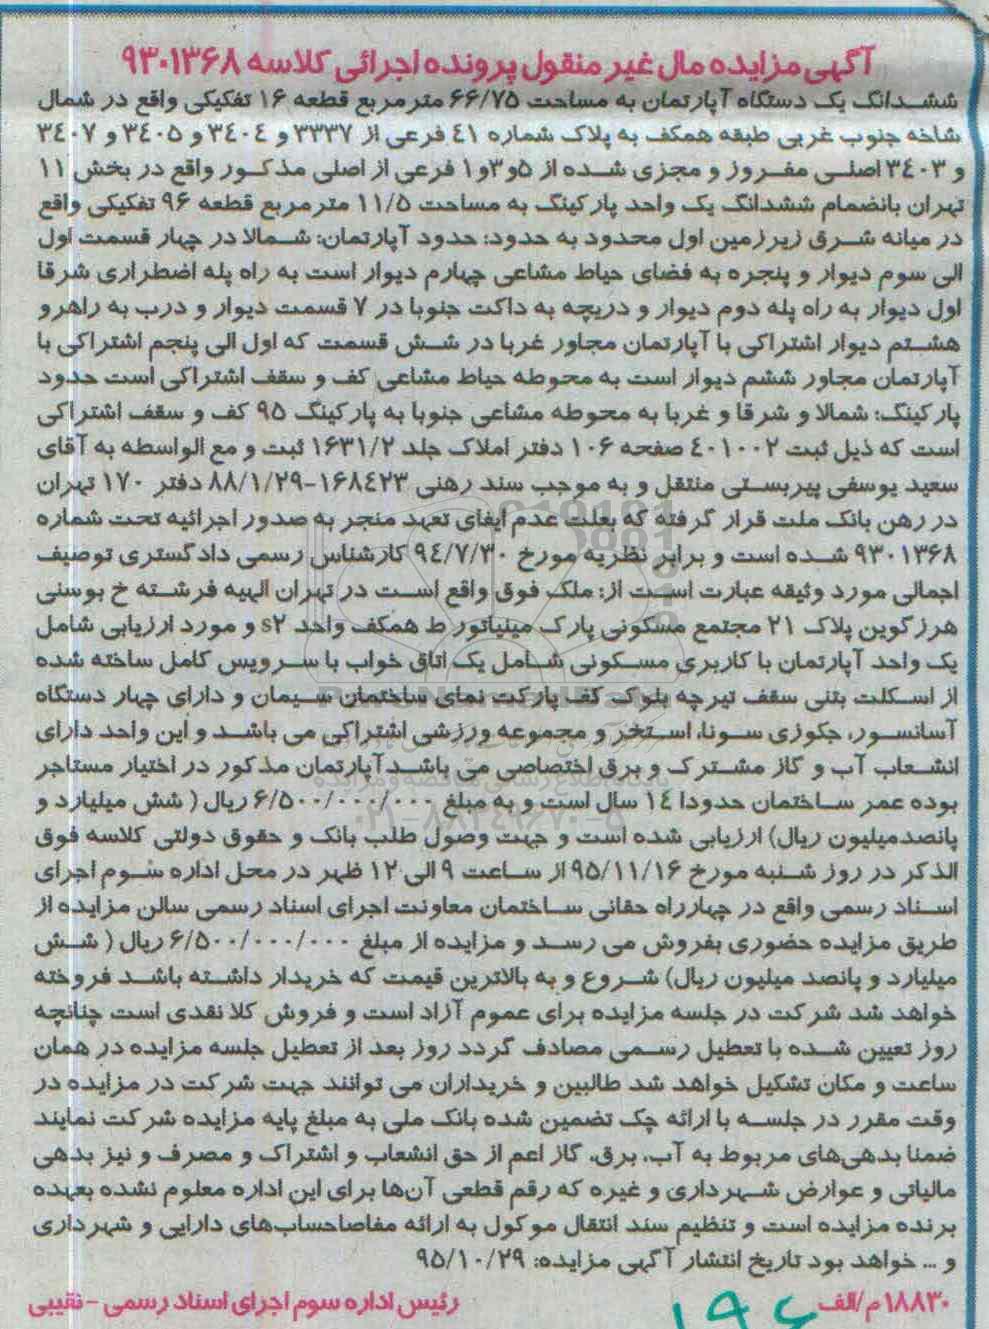 آگهی مزایده مال غیر منقول پرونده اجرائی کلاسه ۹۳۰۱۳۶۸
ششدانگ یک دستگاه آپارتمان به مساحت ۶۶/۷۵ مترمربع قطعه ۱۶ تفکیکی واقع در شمال
شاخه جنوب غربی طبقه همکف به پلاک شماره ۴۱ فرعی از ۳۳۳۷ و ۳۴۰۴ و ۳۴۰۵ و ۳۴۰۷
و ۳۴۰۳ اصلی مفروز و مجزی شده از ۵و۳و۱ فرعی از اصلی مذکور واقع در بخش ۱۱
تهران بانضمام ششدانگ یک واحد پارکینگ به مساحت ۱۱/۵ مترمربع قطعه ۹۶ تفکیکی واقع
در میانه شرق زیرزمین اول محدود به حدود: حدود آپارتمان: شمالا در چهار قسمت اول
الی سوم دیوار و پنجره به فضای حیاط مشاعی چهارم دیوار است به راه پله اضطراری شرقا
اول دیوار به راه پله دوم دیوار و دریچه به داکت جنوبا در ۷ قسمت دیوار و درب به راهرو
هشتم دیوار اشتراکی با آپارتمان مجاور غربا در شش قسمت که اول الی پنجم اشتراکی با
آپارتمان مجاور ششم دیوار است به محوطه حیاط مشاعی کف و سقف اشتراکی است حدود
پارکینگ: شمالا و شرقا و غربا به محوطه مشاعی جنوبا به پارکینگ ۹۵ کف و سقف اشتراکی
است که ذیل ثبت ۴۰۱۰۰۲ صفحه ۱۰۶ دفتر املاک جلد ۱۶۳۱/۲ ثبت و مع الواسطه به آقای
سعید یوسفی پیربستی منتقل و به موجب سند رهنی ۱۶۸۴۲۳-۸۸/۱/۲۹ دفتر ۱۷۰ تهران
در رهن بانک ملت قرار گرفته که بعلت عدم ایفای تعهد منجر به صدور اجرائیه تحت شماره
۹۳۰۱۳۶۸ شده است و برابر نظریه مورخ ۹۴/۷/۳۰ کارشناس رسمی دادگستری توصیف
اجمالی مورد وثیقه عبارت است از: ملک فوق واقع است در تهران الهیه فرشته خ بوسنی
هرزگوین پلاک ۲۱ مجتمع مسکونی پارک مینیاتور ط همکف واحد s۲ و مورد ارزیابی شامل
یک واحد آپارتمان با کاربری مسکونی شامل یک اتاق خواب با سرویس کامل ساخته شده
از اسکلت بتنی سقف تیرچه بلوک کف پارکت نمای ساختمان سیمان و دارای چهار دستگاه
آسانسور، جکوزی سونا، استخر و مجموعه ورزشی اشتراکی می باشد و این واحد دارای
انشعاب آب و گاز مشترک و برق اختصاصی می باشد آپارتمان مذکور در اختیار مستاجر
بوده عمر ساختمان حدودا ۱۴ سال است و به مبلغ ۶/۵۰۰/۰۰۰/۰۰۰ ریال ( شش میلیارد و
پانصدمیلیون ریال) ارزیابی شده است و جهت وصول طلب بانک و حقوق دولتی کلاسه فوق
الذکر در روز شنبه مورخ ۹۵/۱۱/۱۶ از ساعت ۹ الی ۱۲ ظهر در محل اداره سوم اجرای
اسناد رسمی واقع در چهارراه حقانی ساختمان معاونت اجرای اسناد رسمی سالن مزایده از
طریق مزایده حضوری بفروش می رسد و مزایده از مبلغ ۶/۵۰۰/۰۰۰/۰۰۰ ریال ( شش
میلیارد و پانصد میلیون ریال) شروع و به بالاترین قیمت که خریدار داشته باشد فروخته
خواهد شد شرکت در جلسه مزایده برای عموم آزاد است و فروش کلا نقدی است چنانچه
روز تعیین شده با تعطیل رسمی مصادف گردد روز بعد از تعطیل جلسه مزایده در همان
ساعت و مکان تشکیل خواهد شد طالبین و خریداران می توانند جهت شرکت در مزایده در
وقت مقرر در جلسه با ارائه چک تضمین شده بانک ملی به مبلغ پایه مزایده شرکت نمایند
ضمنا بدهی‌های مربوط به آب، برق، گاز اعم از حق انشعاب و اشتراک و مصرف و نیز بدهی
مالیاتی و عوارض شهرداری و غیره که رقم قطعی آن‌ها برای این اداره معلوم نشده بعهده
برنده مزایده است و تنظیم سند انتقال موکول به ارائه مفاصاحساب‌های دارایی و شهرداری
و ... خواهد بود تاریخ انتشار آگهی مزایده: ۹۵/۱۰/۲۹
۱۸۸۳۰م/الف رئیس اداره سوم اجرای اسناد رسمی - نقیبی
۱۹۶